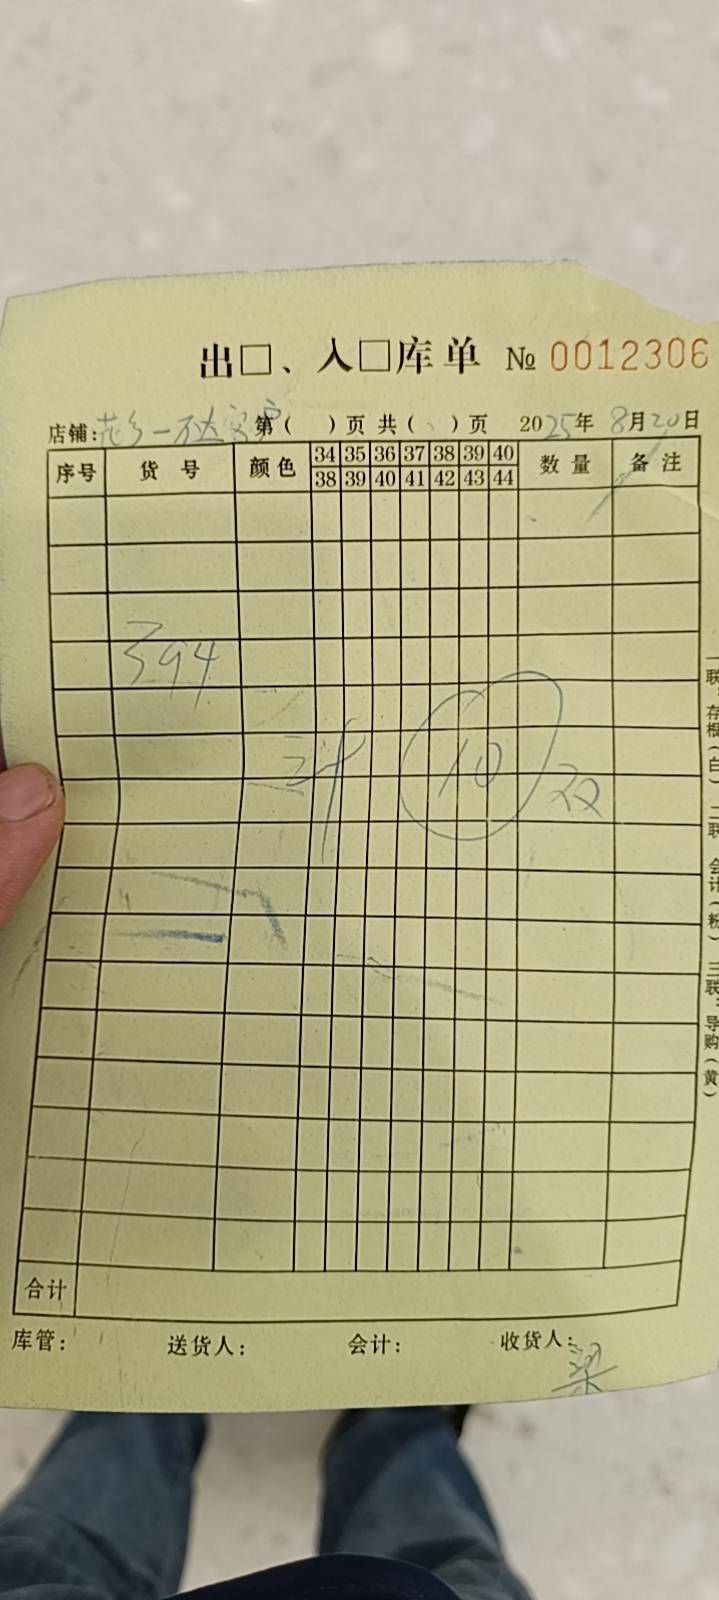 出□、入□库单 № 0012306
店铺: 第( )页 共( )页 2025年 8月20日
序号 货号 颜色 34 35 36 37 38 39 40 数量 备注
38 39 40 41 42 43 44
394
计 10 双
合计
库管: 送货人: 会计: 收货人: 梁
一联:存根(白) 二联 会计(粉) 三联:导购(黄)